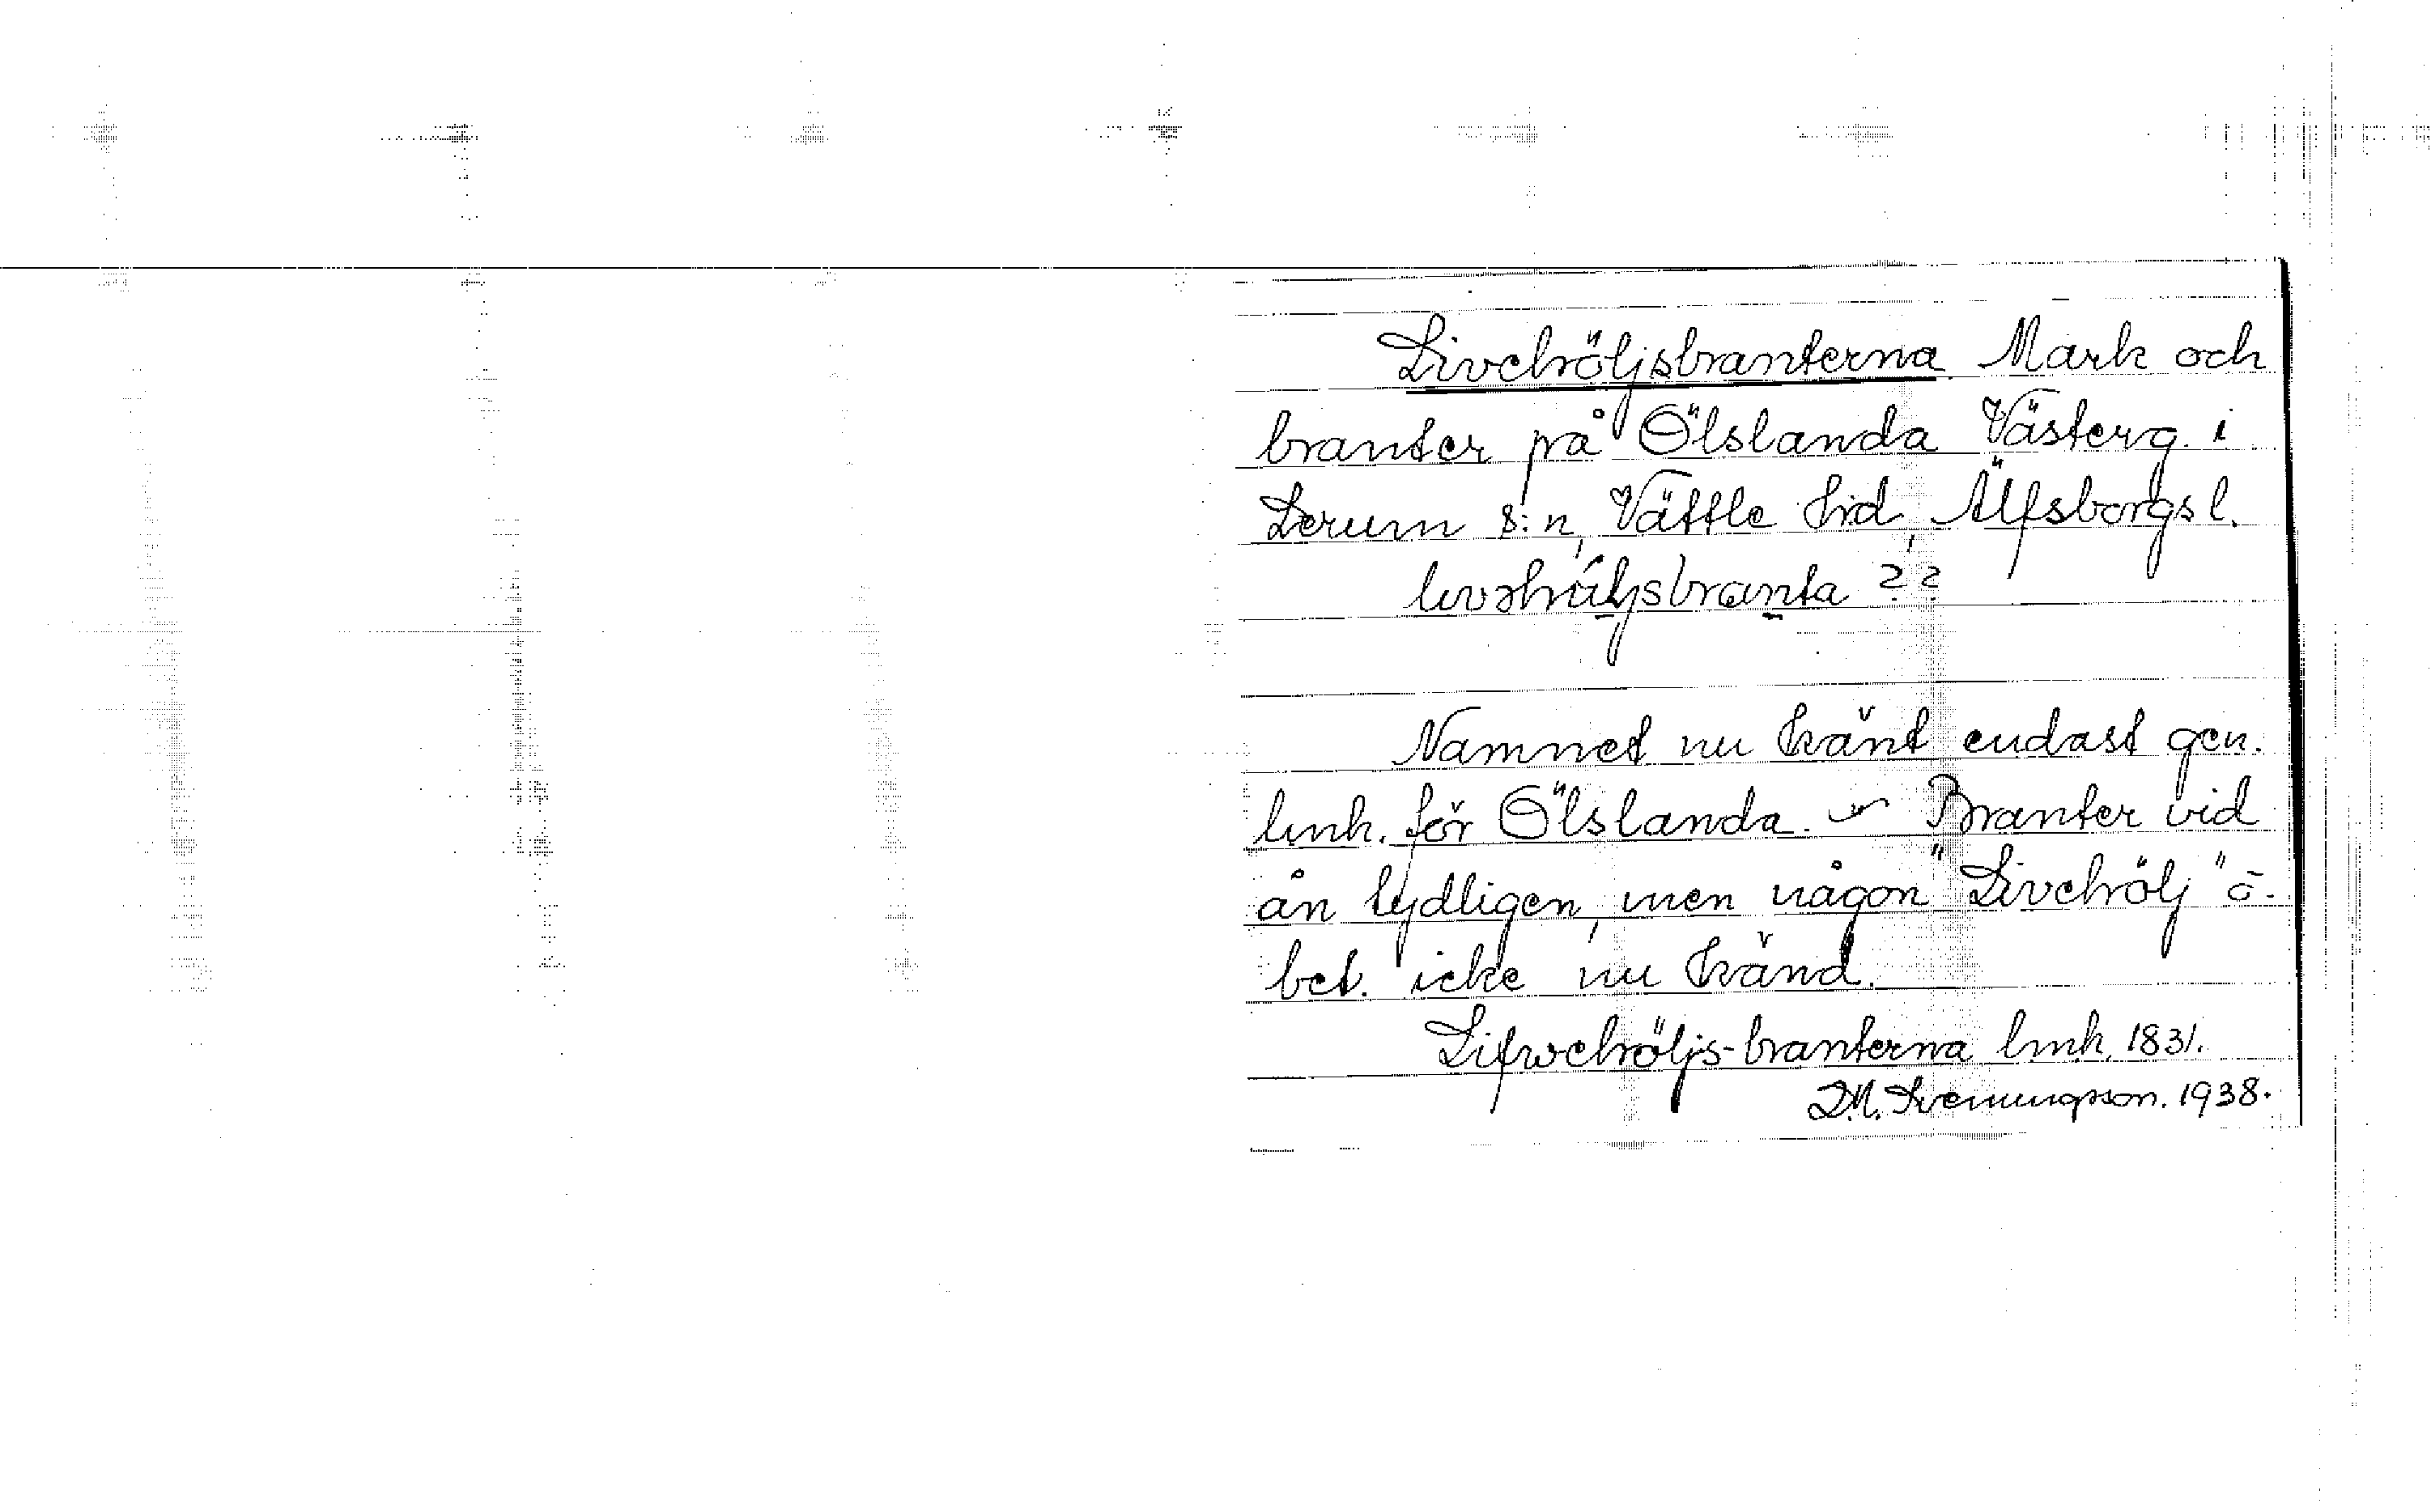 Livchröljsbranterna Mark och
branter på Ölslanda Västerg. i
Lerum s:n, Vättle hd, Älfsborgs l.
Namnet nu känt endast gen.
lmh. för Ölslanda. Branter vid
ån tydligen, men någon "Livchrölj" ö.
bet. icke nu känd.
Lifwchröljs-branterna lmh. 1831.
D.M. Svenungsson. 1938.